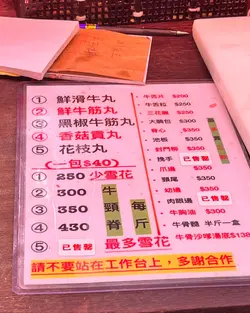 ① 鮮滑牛丸
② 鮮牛筋丸
③ 黑椒牛筋丸
④ 香菇貢丸
⑤ 花枝丸
(一包$40)
① 250 少雪花
② 300 牛
③ 350 頸 每
④ 430 脊 斤
⑤ 已售罄 最多雪花
牛舌片 $350
牛舌粒 $250
三花腩 $200
大腩包 $300
脊心 $350
池板 $350
封門腱 $350
挽手 已售罄
爪邊 $350
頸尾 $350
幼邊 $350
肉眼邊 已售罄
牛胸油 $300
牛骨髓 半斤一盒
牛骨沙嗲湯底$138
請不要站在工作台上，多謝合作